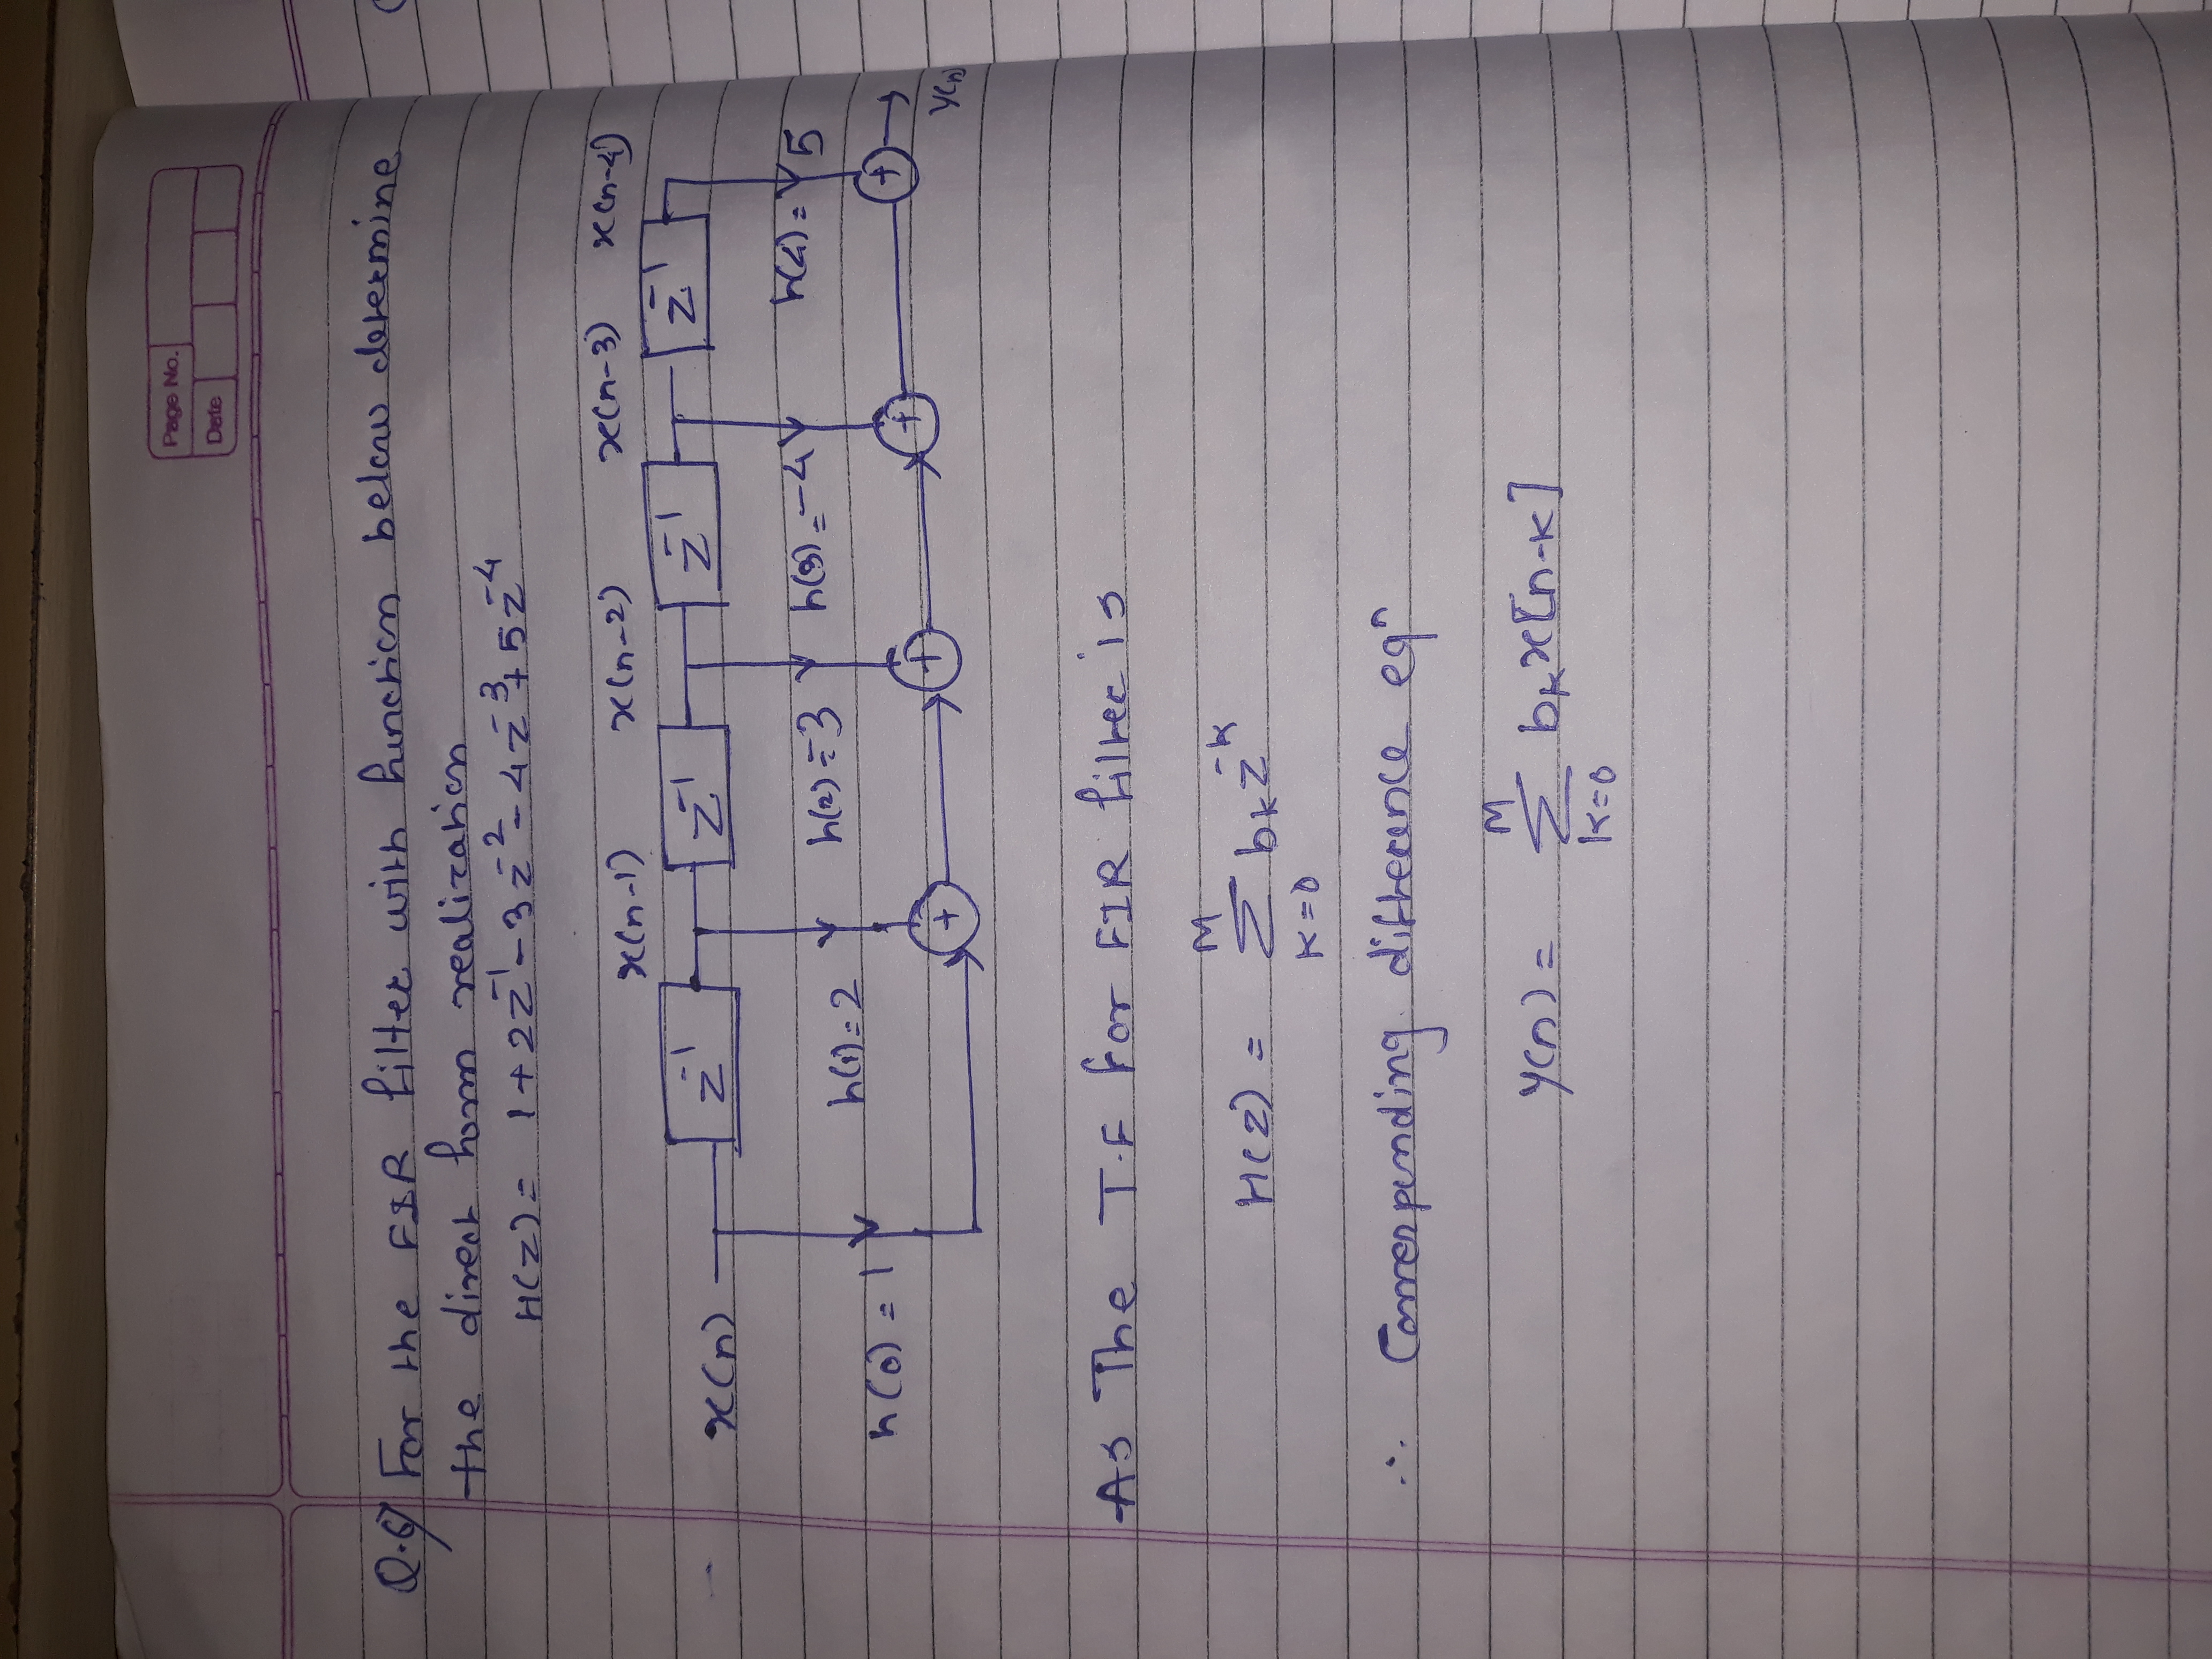 Page No.
Date
Q.6) For the FIR filter with function below determine
the direct form realization
H(z) = 1 + 2z⁻¹ - 3z⁻² - 4z⁻³ + 5z⁻⁴
x(n-1) x(n-2) x(n-3) x(n-4)
x(n) z⁻¹ z⁻¹ z⁻¹ z⁻¹
h(0) = 1 h(1) = 2 h(2) = -3 h(3) = -4 h(4) = 5
+ + + +
y(n)
As The T.F for FIR filter is
M
H(z) = Σ bₖ z⁻ᵏ
K=0
∴ Corresponding difference eqⁿ
M
y(n) = Σ bₖ x[n-k]
K=0